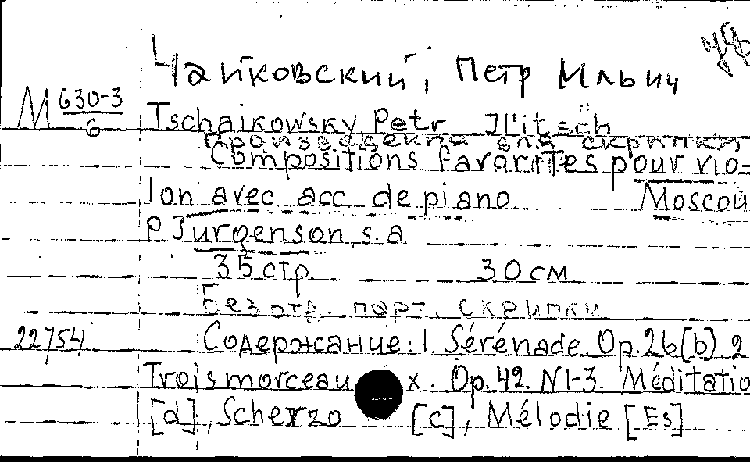 Чайковский, Петр Ильич
М 630-3
6
Tschaikowsky Petr Il'itsch
произведения для скрипки
Compositions favorites pour vio-
lon avec acc. de piano Moscou
P. Jurgenson, s.a
35 стр. 30 см
Без отд. парт. скрипки
22754 Содержание: 1 Sérénade Op.26[b] 2
Trois morceaux. Op.42. N1-3. Méditatio
[d], Scherzo [c], Mélodie [Es]